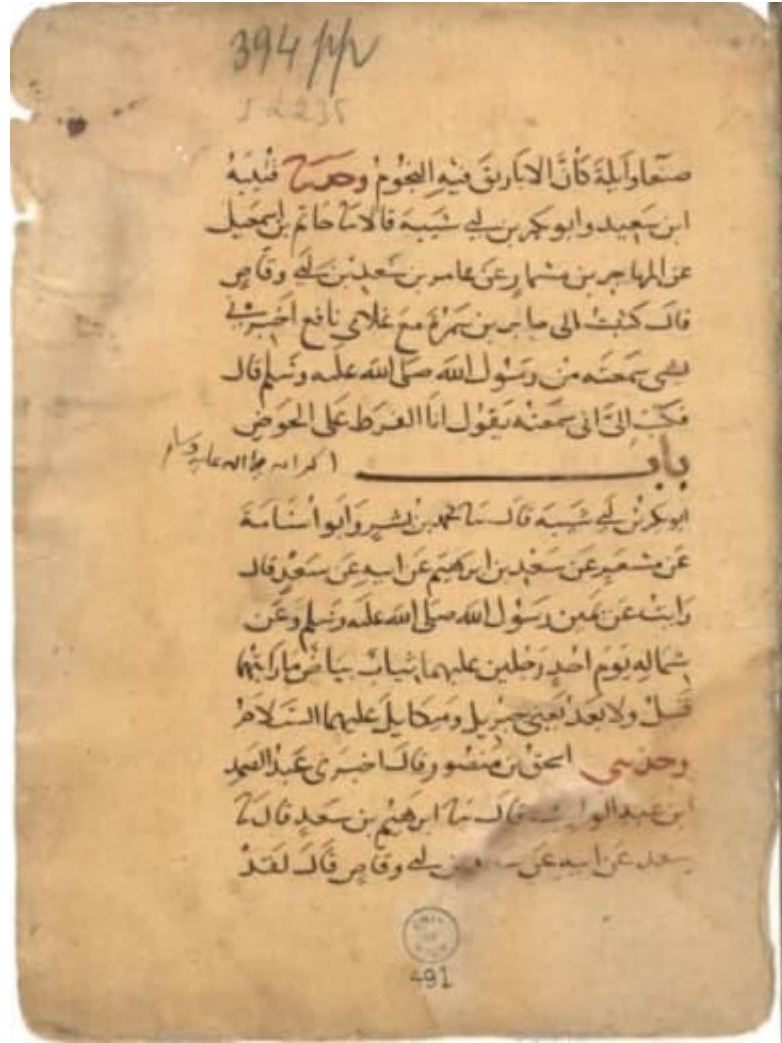 394
صنعا وايلة كأن الاباريق فيه النجوم وحدثنا قتيبة
ابن سعيد وابو بكر بن ابي شيبة قالا نا حاتم بن اسمعيل
عن المهاجر بن مسمار عن عامر بن سعد بن ابي وقاص
قال كتبت الى جابر بن سمرة مع غلامي نافع اخبرني
بشي سمعته من رسول الله صلى الله عليه وسلم قال
فكتب الي اني سمعته يقول انا الفرط على الحوض
باب
ابو بكر بن ابي شيبة قال نا محمد بن بشر وابو اسامة
عن مسعر عن سعد بن ابرهيم عن ابيه عن سعد قال
رايت عن يمين رسول الله صلى الله عليه وسلم وعن
شماله يوم احد رجلين عليهما ثياب بياض ما رايتهما
قبل ولا بعد يعني جبريل وميكايل عليهما السلام
وحدثني اسحق بن منصور قال اخبرني عبد الصمد
ابن عبد الوارث قال نا ابرهيم بن سعد قال نا
سعد عن ابيه عن سعد بن ابي وقاص قال لقد
491